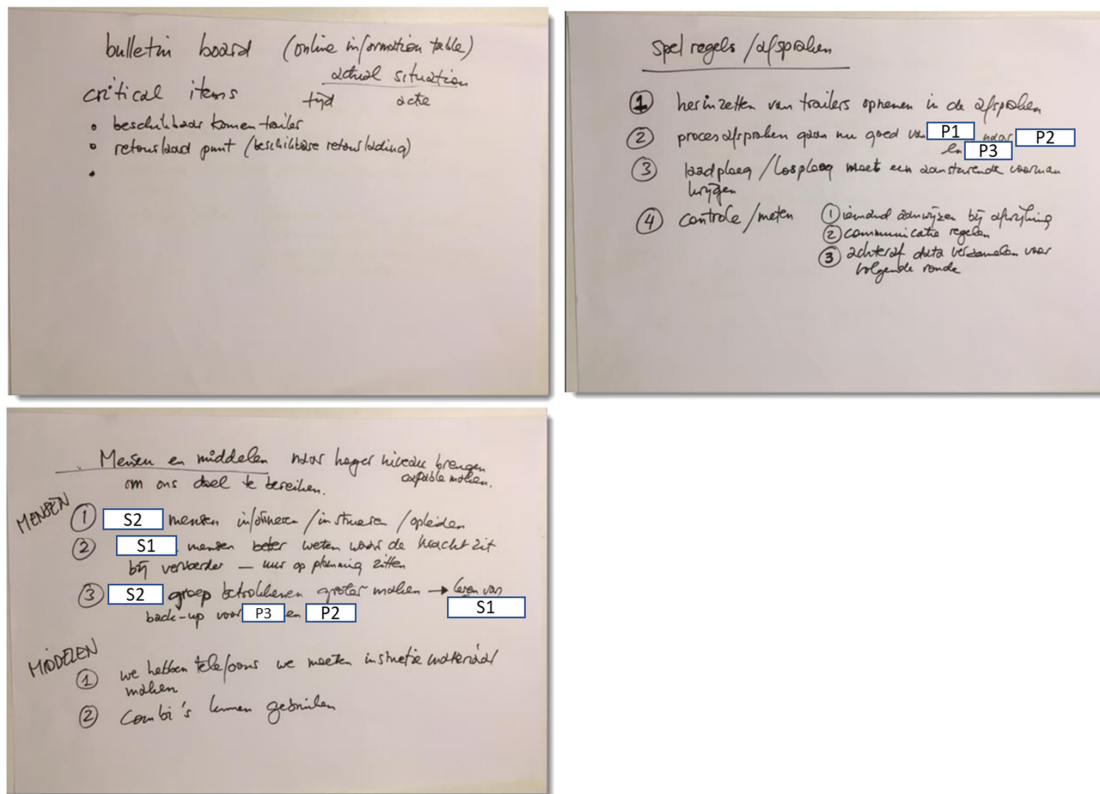 bulletin board (online information table)
actual situation
critical items tijd actie
• beschikbaar komen trailer
• retourlaad punt (beschikbare retourlading)
•
Spel regels / afspraken
1 herinzetten van trailers opnemen in de afspraken
2 proces afspraken gaan nu goed van P1 naar P2
en P3
3 laadploeg / losploeg moet een aansturende voorman
krijgen
4 controle / meten 1 iemand aanwijzen bij afwijking
2 communicatie regelen
3 achteraf data verzamelen voor
volgende ronde
Mensen en middelen naar hoger niveau brengen
om ons doel te bereiken. capable maken.
MENSEN
1 S2 mensen informeren / instrueren / opleiden
2 S1 mensen weten waar de kracht zit
bij vervoerder – uur op planning zitten
3 S2 groep betrokkenen groter maken → leren van
back-up voor P3 en P2 S1
MIDDELEN
1 we hebben telefoons we moeten instructie materiaal
maken
2 Combi's kunnen gebruiken